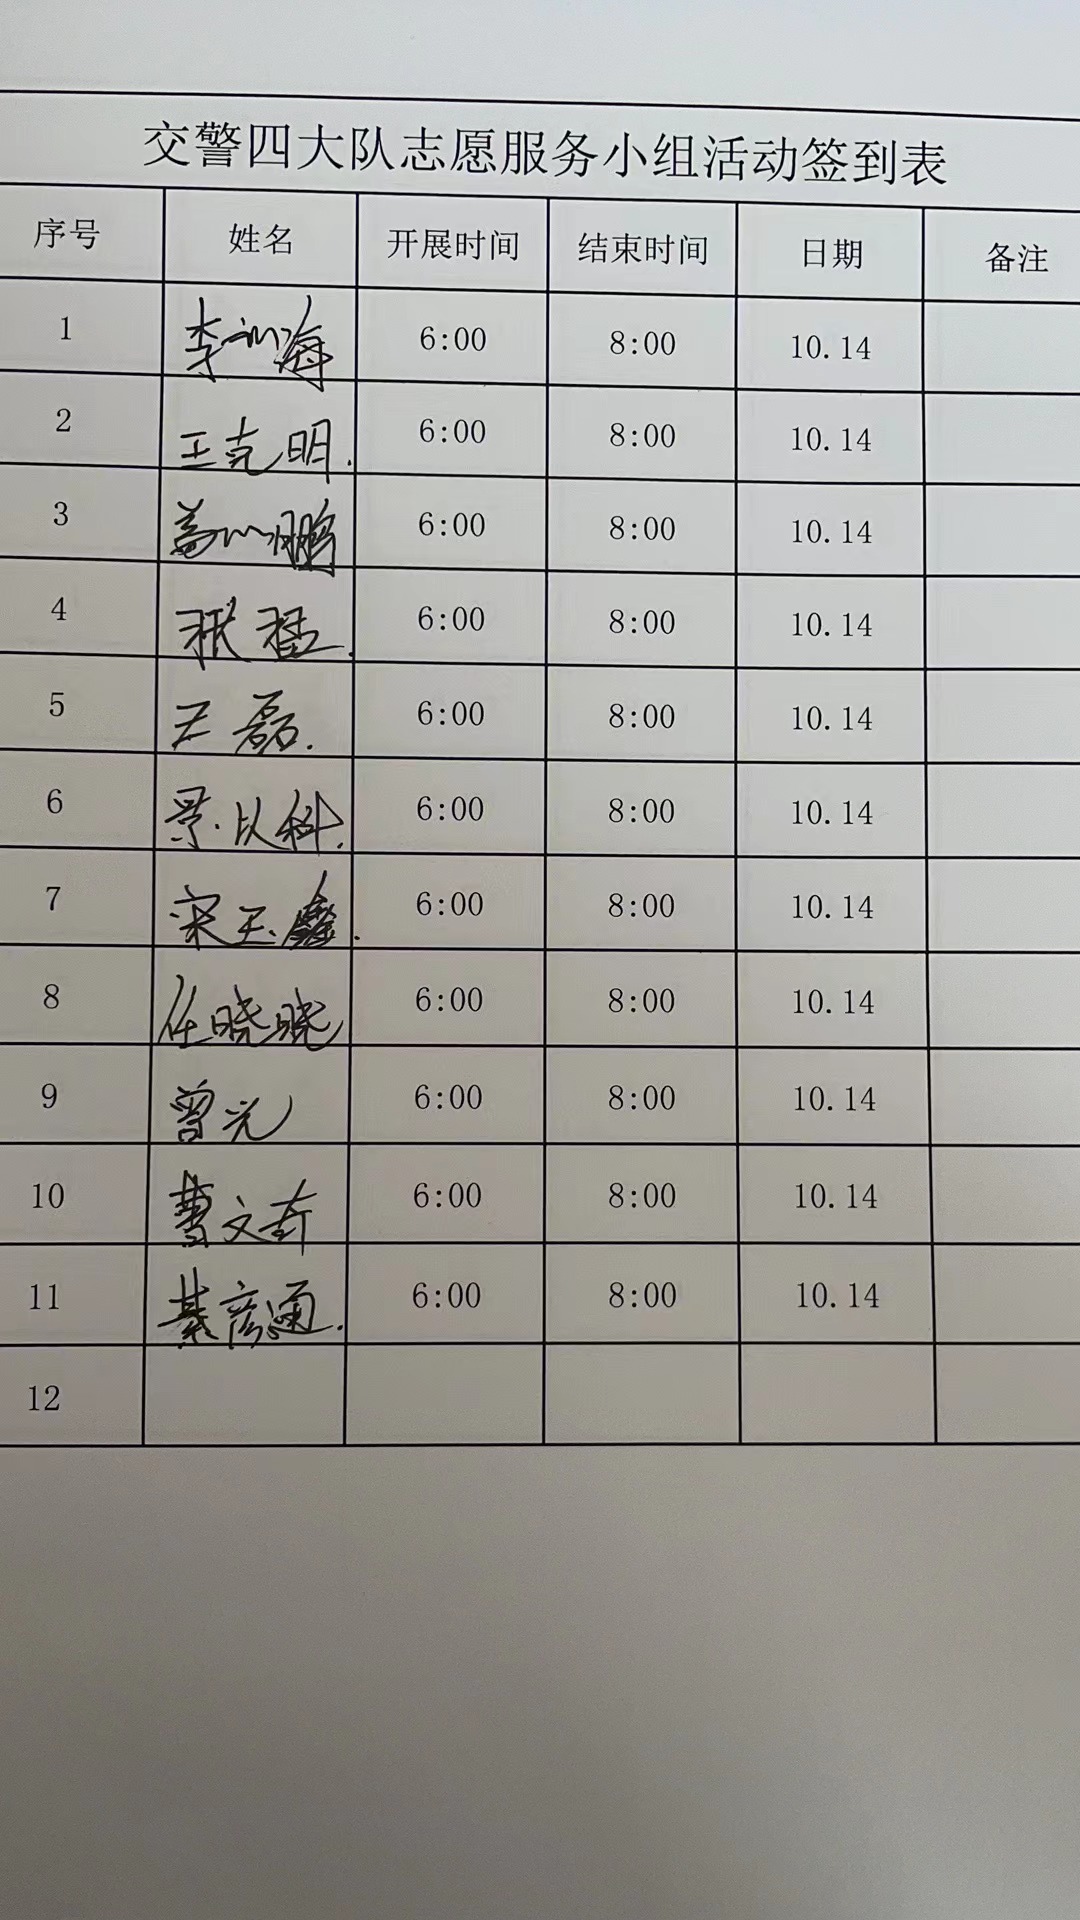 交警四大队志愿服务小组活动签到表
序号 姓名 开展时间 结束时间 日期 备注
1 李 海 6:00 8:00 10.14
2 王克明. 6:00 8:00 10.14
3 鹏 6:00 8:00 10.14
4 张 6:00 8:00 10.14
5 王磊. 6:00 8:00 10.14
6 景以科. 6:00 8:00 10.14
7 宋玉鑫. 6:00 8:00 10.14
8 任晓晓 6:00 8:00 10.14
9 曾光 6:00 8:00 10.14
10 曹文奇 6:00 8:00 10.14
11 綦彦通. 6:00 8:00 10.14
12